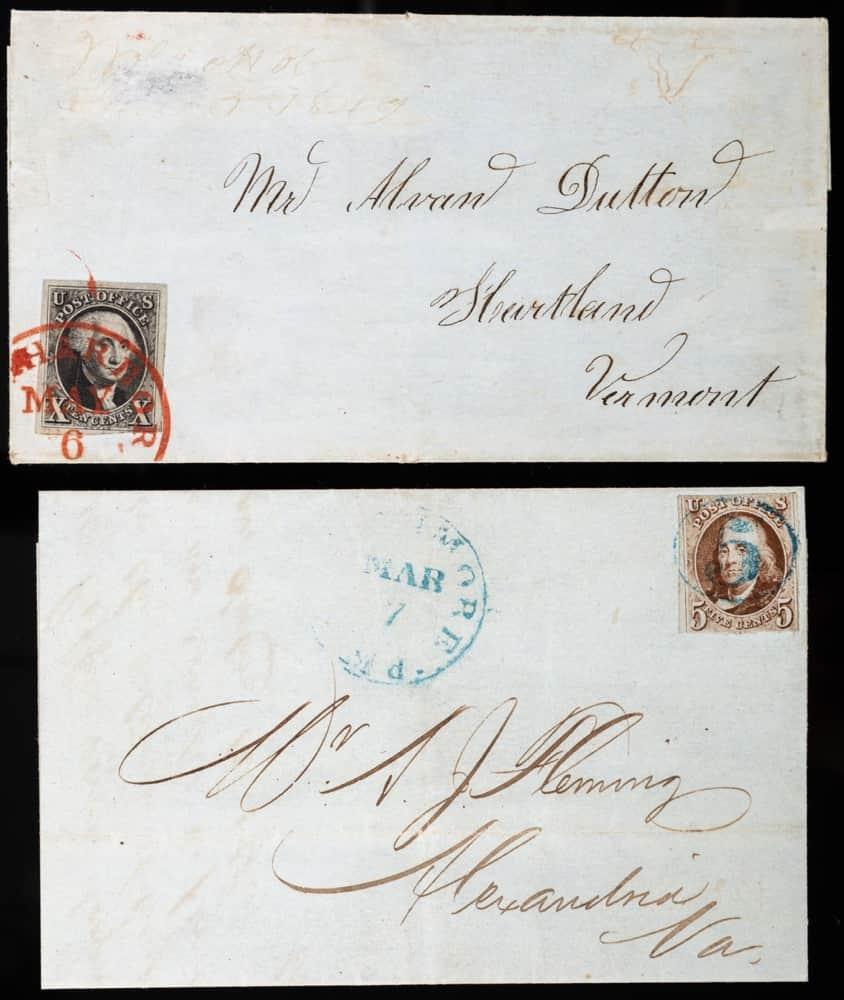 Mr Alvan Dutton
Hartland
Vermont
U S
POST OFFICE
X TEN CENTS X
HARBOR
MAY
6
MORE
MAR
7
U S
POST OFFICE
5 FIVE CENTS 5
5
Mr. A. J. Fleming
Alexandria
Va.